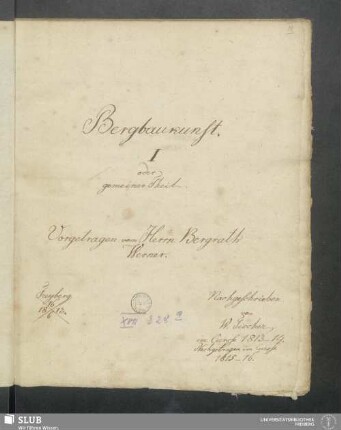 Bergbaukunst.
I
oder
gemeiner Theil.
Vorgetragen vom Herrn Bergrath
Werner.
Freyberg
Nachgeschrieben
von
W Fischer,
im Cursus 1813–14.
Nachgetragen im Cursus
1815–16.
XVII 321 a
SLUB
Wir führen Wissen.
UNIVERSITÄTSBIBLIOTHEK
FREIBERG